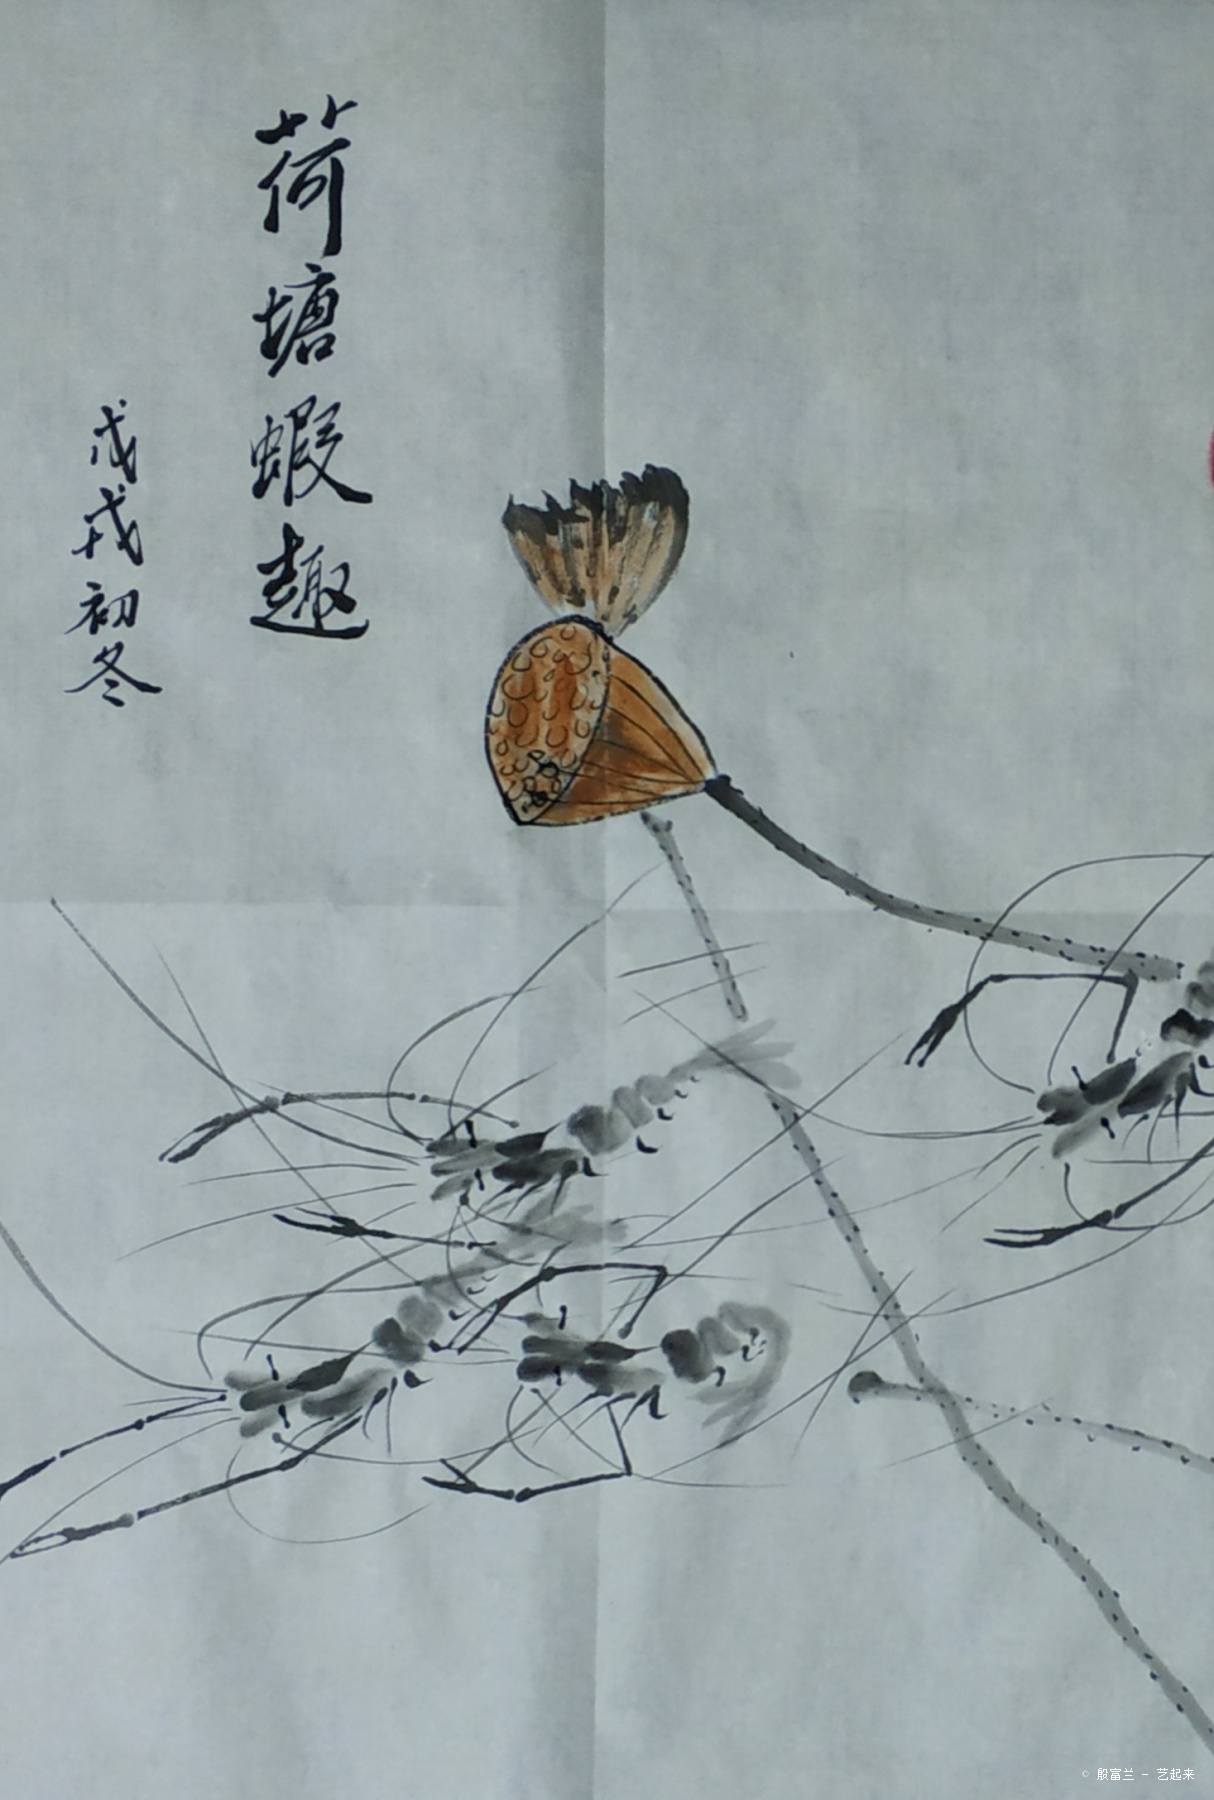 荷塘蝦趣
戊戌初冬
© 殷富兰 - 艺起来